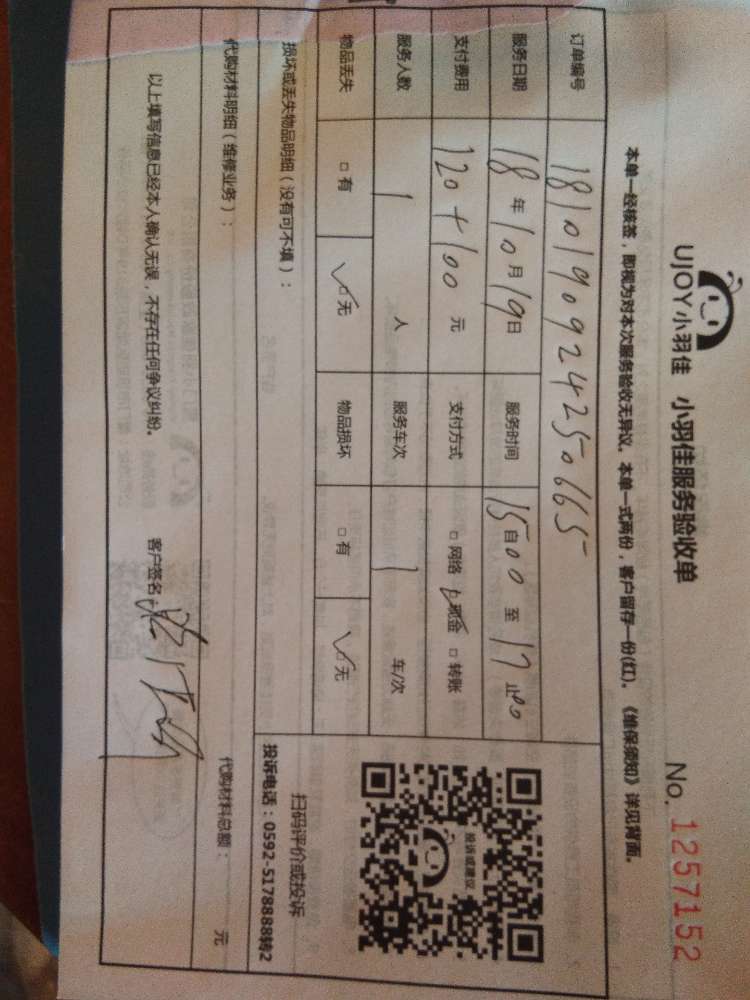 UJOY小羽佳 小羽佳服务验收单
No. 1257152
本单一经核签，即视为对本次服务验收无异议。本单一式两份，客户留存一份(红)。《维保须知》详见背面。
订单编号 1810190924250665
服务日期 18年10月19日 服务时间 自1500至1700止
支付费用 120+100元 支付方式 □网络 ☑现金 □转账
服务人数 1人 服务车次 1车/次
物品丢失 □有 ☑无 物品损坏 □有 ☑无
投诉或建议
扫码评价或投诉
投诉电话：0592-5178888转2
损坏或丢失物品明细（没有可不填）：
代购材料明细（维修业务）： 代购材料总额： 元
以上填写信息已经本人确认无误，不存在任何争议纠纷。 客户签名：